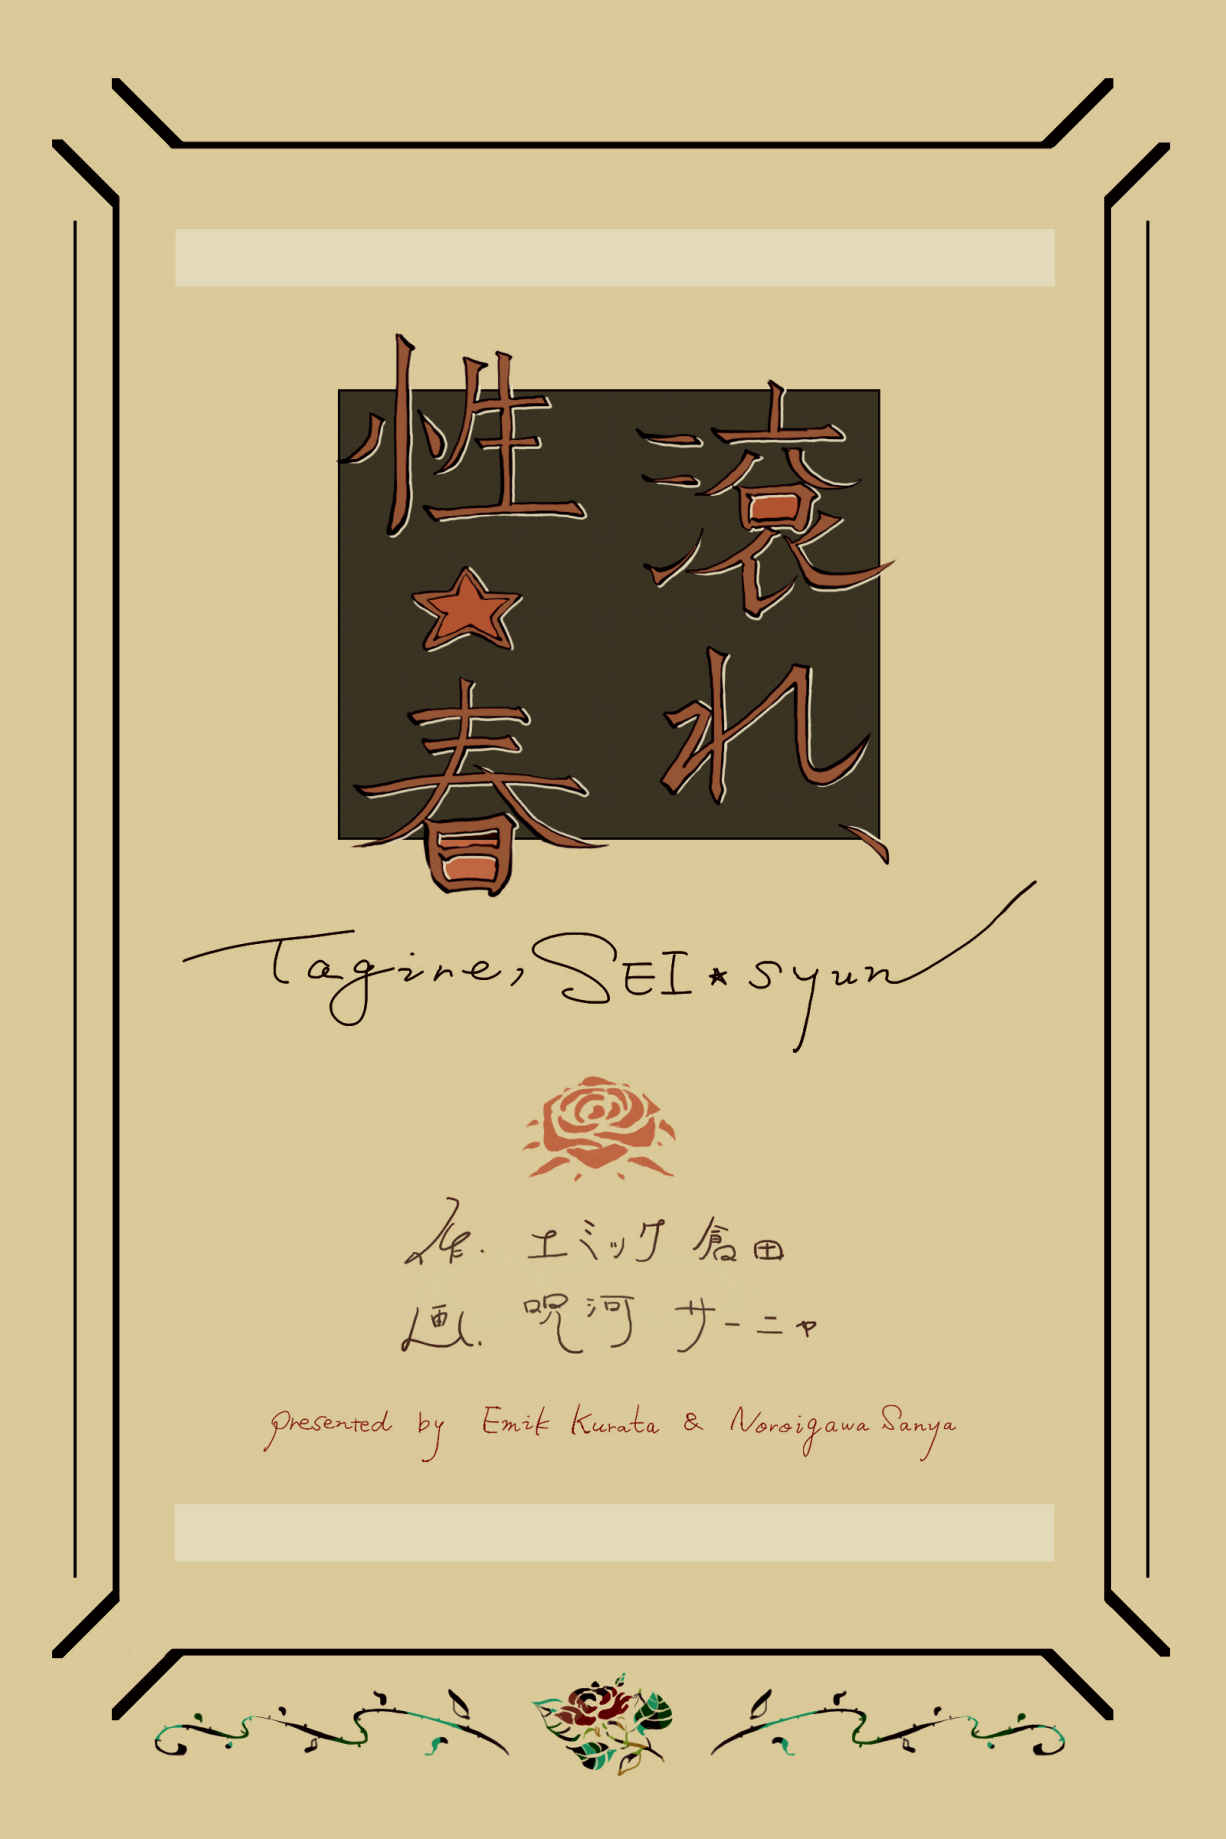 滾れ、
性★春
Tagire, SEI★syun
作. エミック 倉田
画. 呪河 サーニャ
presented by Emik Kurata & Noroigawa Sanya